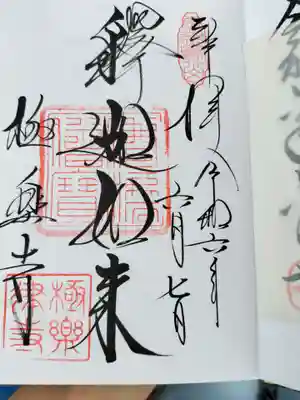 奉拝 令和六年
六月七日
釋迦如来
極楽寺
極樂律寺